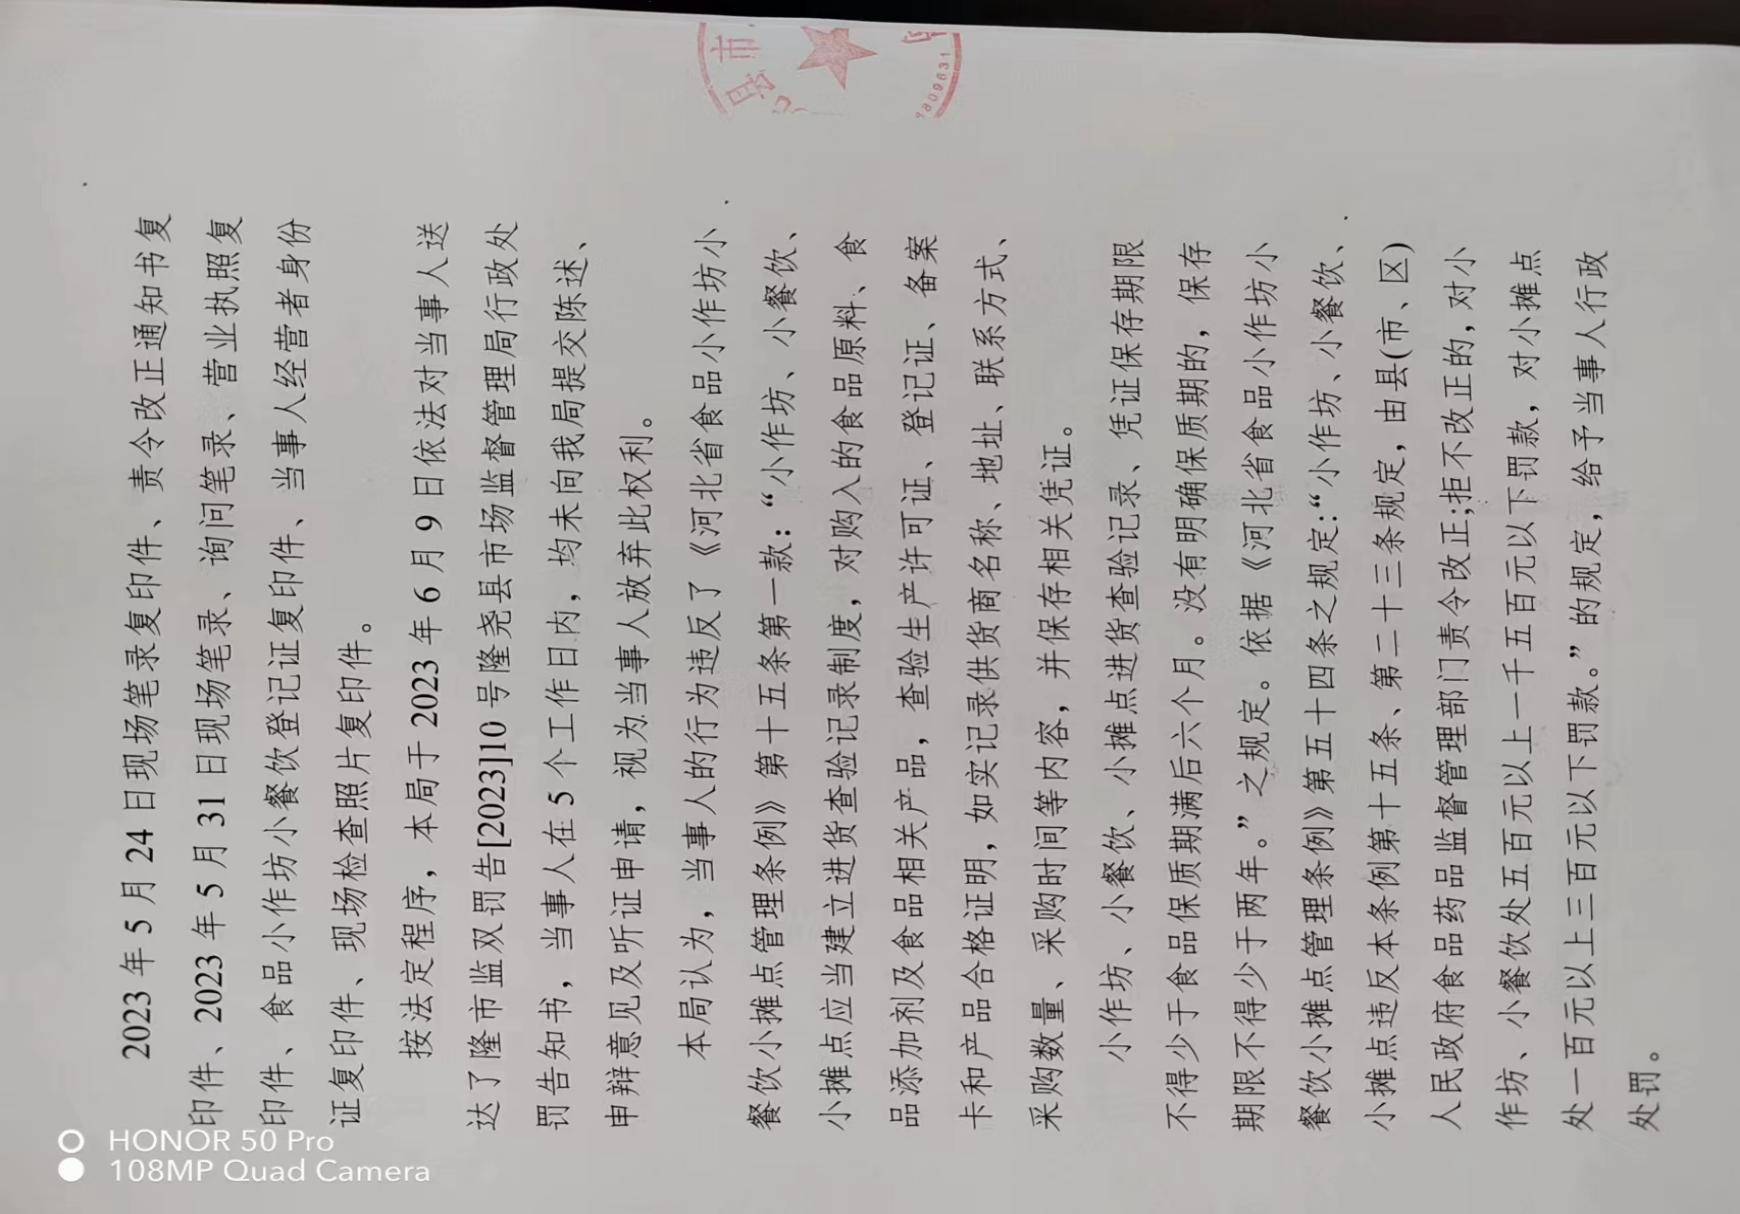 2023 年 5 月 24 日现场笔录复印件、责令改正通知书复
印件、2023 年 5 月 31 日现场笔录、询问笔录、营业执照复
印件、食品小作坊小餐饮登记证复印件、当事人经营者身份
证复印件、现场检查照片复印件。
按法定程序，本局于 2023 年 6 月 9 日依法对当事人送
达了隆市监双罚告[2023]10 号隆尧县市场监督管理局行政处
罚告知书，当事人在 5 个工作日内，均未向我局提交陈述、
申辩意见及听证申请，视为当事人放弃此权利。
本局认为，当事人的行为违反了《河北省食品小作坊小
餐饮小摊点管理条例》第十五条第一款：“小作坊、小餐饮、
小摊点应当建立进货查验记录制度，对购入的食品原料、食
品添加剂及食品相关产品，查验生产许可证、登记证、备案
卡和产品合格证明，如实记录供货商名称、地址、联系方式、
采购数量、采购时间等内容，并保存相关凭证。
小作坊、小餐饮、小摊点进货查验记录、凭证保存期限
不得少于食品保质期满后六个月。没有明确保质期的，保存
期限不得少于两年。”之规定。依据《河北省食品小作坊小
餐饮小摊点管理条例》第五十四条之规定:“小作坊、小餐饮、
小摊点违反本条例第十五条、第二十三条规定，由县(市、区)
人民政府食品药品监督管理部门责令改正;拒不改正的，对小
作坊、小餐饮处五百元以上一千五百元以下罚款，对小摊点
处一百元以上三百元以下罚款。”的规定，给予当事人行政
处罚。
县市
809631
HONOR 50 Pro
108MP Quad Camera